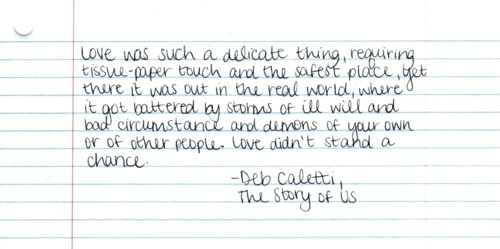 Love was such a delicate thing, requiring
tissue-paper touch and the safest place, yet
there it was out in the real world, where
it got battered by storms of ill will and
bad circumstance and demons of your own
or of other people. Love didn't stand a
chance.
-Deb Caletti,
The Story of Us